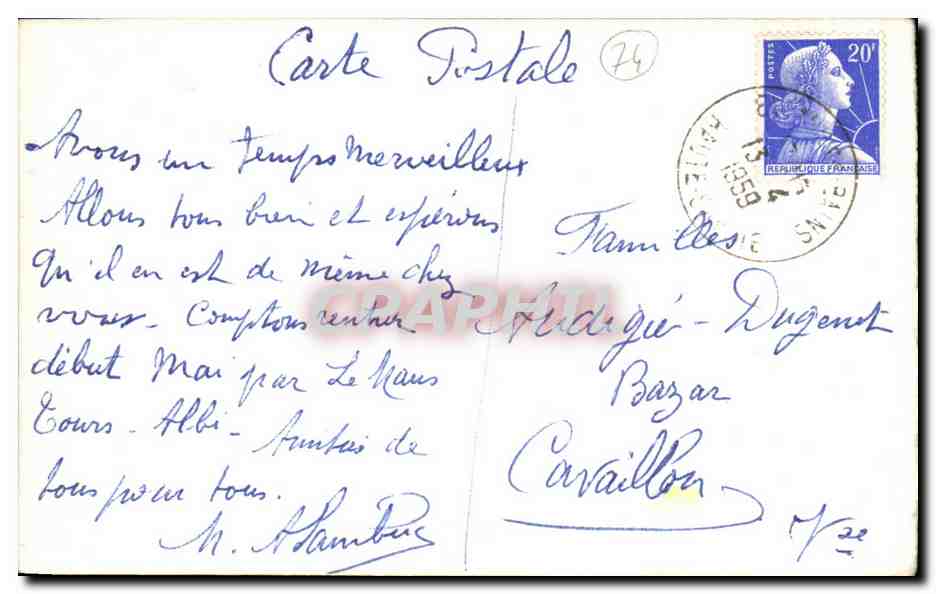 Carte Postale
74
POSTES
20F
REPUBLIQUE FRANÇAISE
BAINS
13 - 4
1959
HAUTE-SAVOIE
Avons un temps merveilleux
Allons tous bien et espérons
Qu'il en est de même chez
vous - Comptons rentrer
début Mai par Le Mans
Tours - Albi - Amitiés de
tous pour tous.
Familles
Audigié - Dugenet
Bazar
Cavaillon
Vse
CPAPHIL